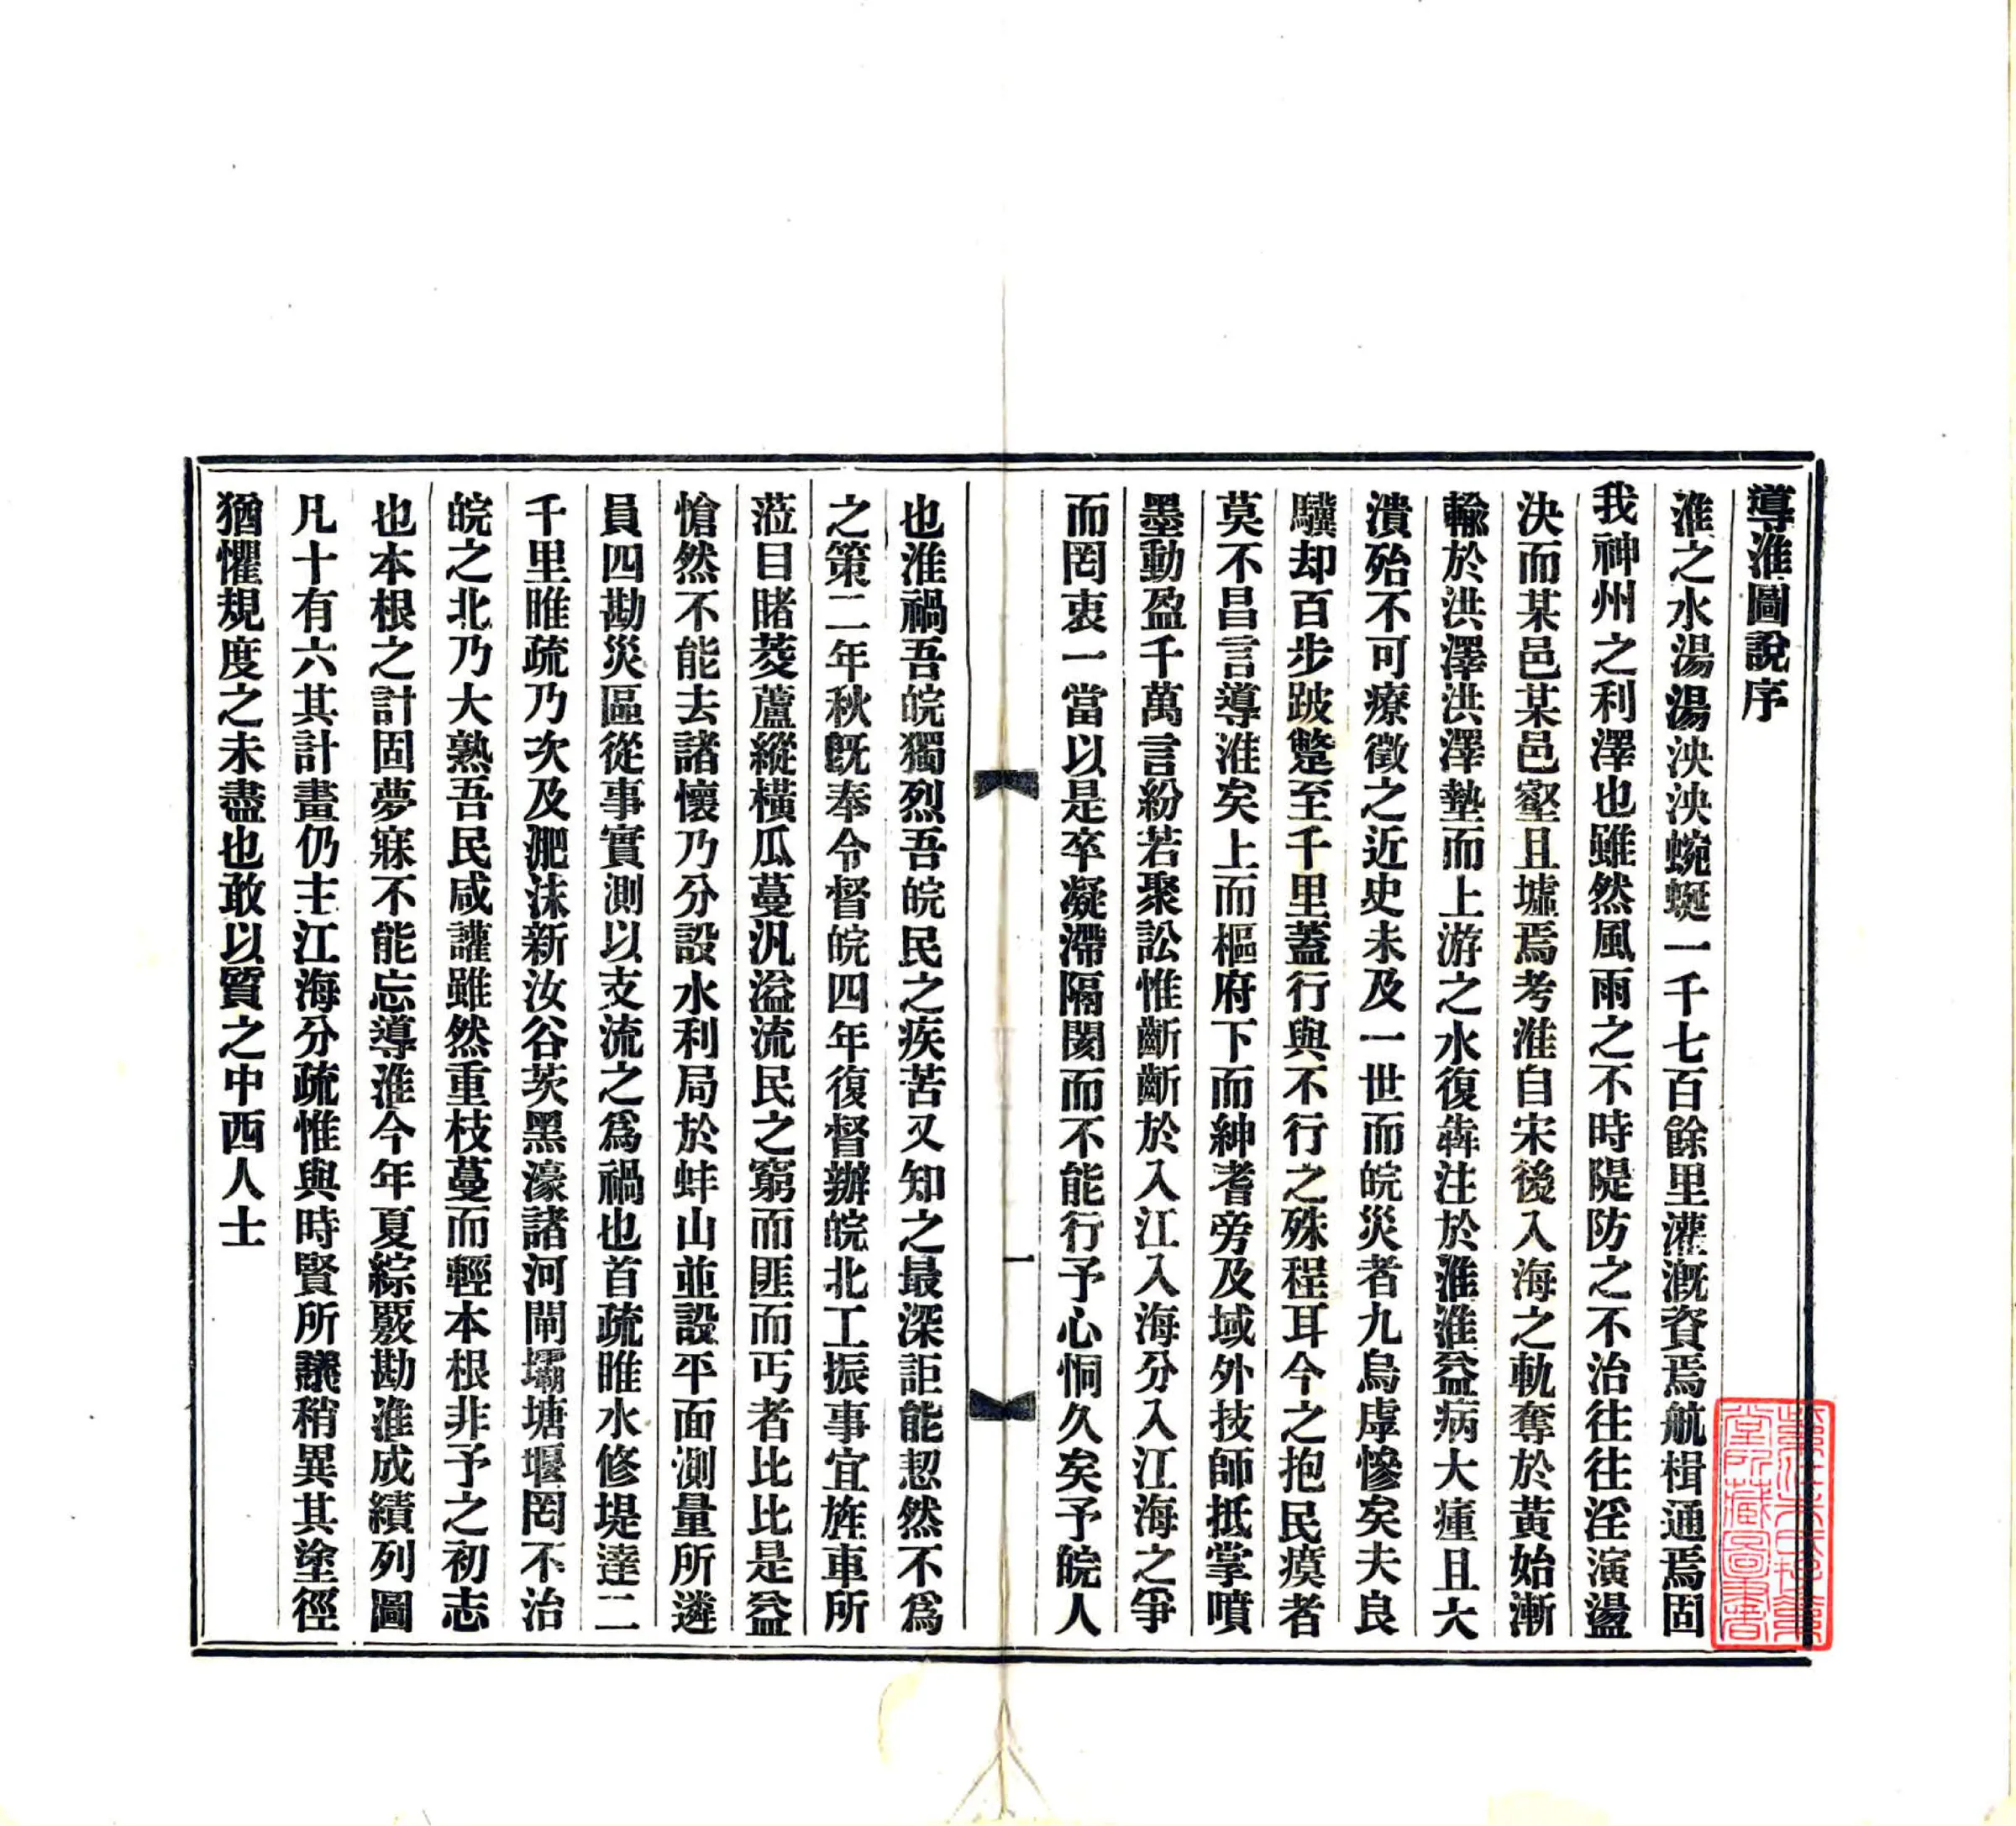 導淮圖說序
淮之水湯湯泱泱蜿蜒一千七百餘里灌漑資焉航楫通焉固
我神州之利澤也雖然風雨之不時隄防之不治往往淫演盪
決而某邑某邑壑且墟焉考淮自宋後入海之軌奪於黃始漸
輸於洪澤洪澤墊而上游之水復犇注於淮淮益病大瘇且大
潰殆不可療徵之近史未及一世而皖災者九烏虖慘矣夫良
驥却百步跛蹩至千里蓋行與不行之殊程耳今之抱民瘼者
莫不昌言導淮矣上而樞府下而紳耆旁及域外技師抵掌噴
墨動盈千萬言紛若聚訟惟齗齗於入江入海分入江海之爭
而罔衷一當以是卒凝滯隔閡而不能行予心恫久矣予皖人
也淮禍吾皖獨烈吾皖民之疾苦又知之最深詎能恝然不爲
之策二年秋旣奉令督皖四年復督辦皖北工振事宜旌車所
蒞目睹菱蘆縱橫瓜蔓汎溢流民之窮而匪而丐者比比是益
愴然不能去諸懷乃分設水利局於蚌山並設平面測量所遴
員四勘災區從事實測以支流之爲禍也首疏睢水修堤達二
千里睢疏乃次及淝沬新汝谷茨黑濠諸河閘壩塘堰罔不治
皖之北乃大熟吾民咸讙雖然重枝蔓而輕本根非予之初志
也本根之計固夢寐不能忘導淮今年夏綜覈勘淮成績列圖
凡十有六其計畫仍主江海分疏惟與時賢所議稍異其塗徑
猶懼規度之未盡也敢以質之中西人士
一